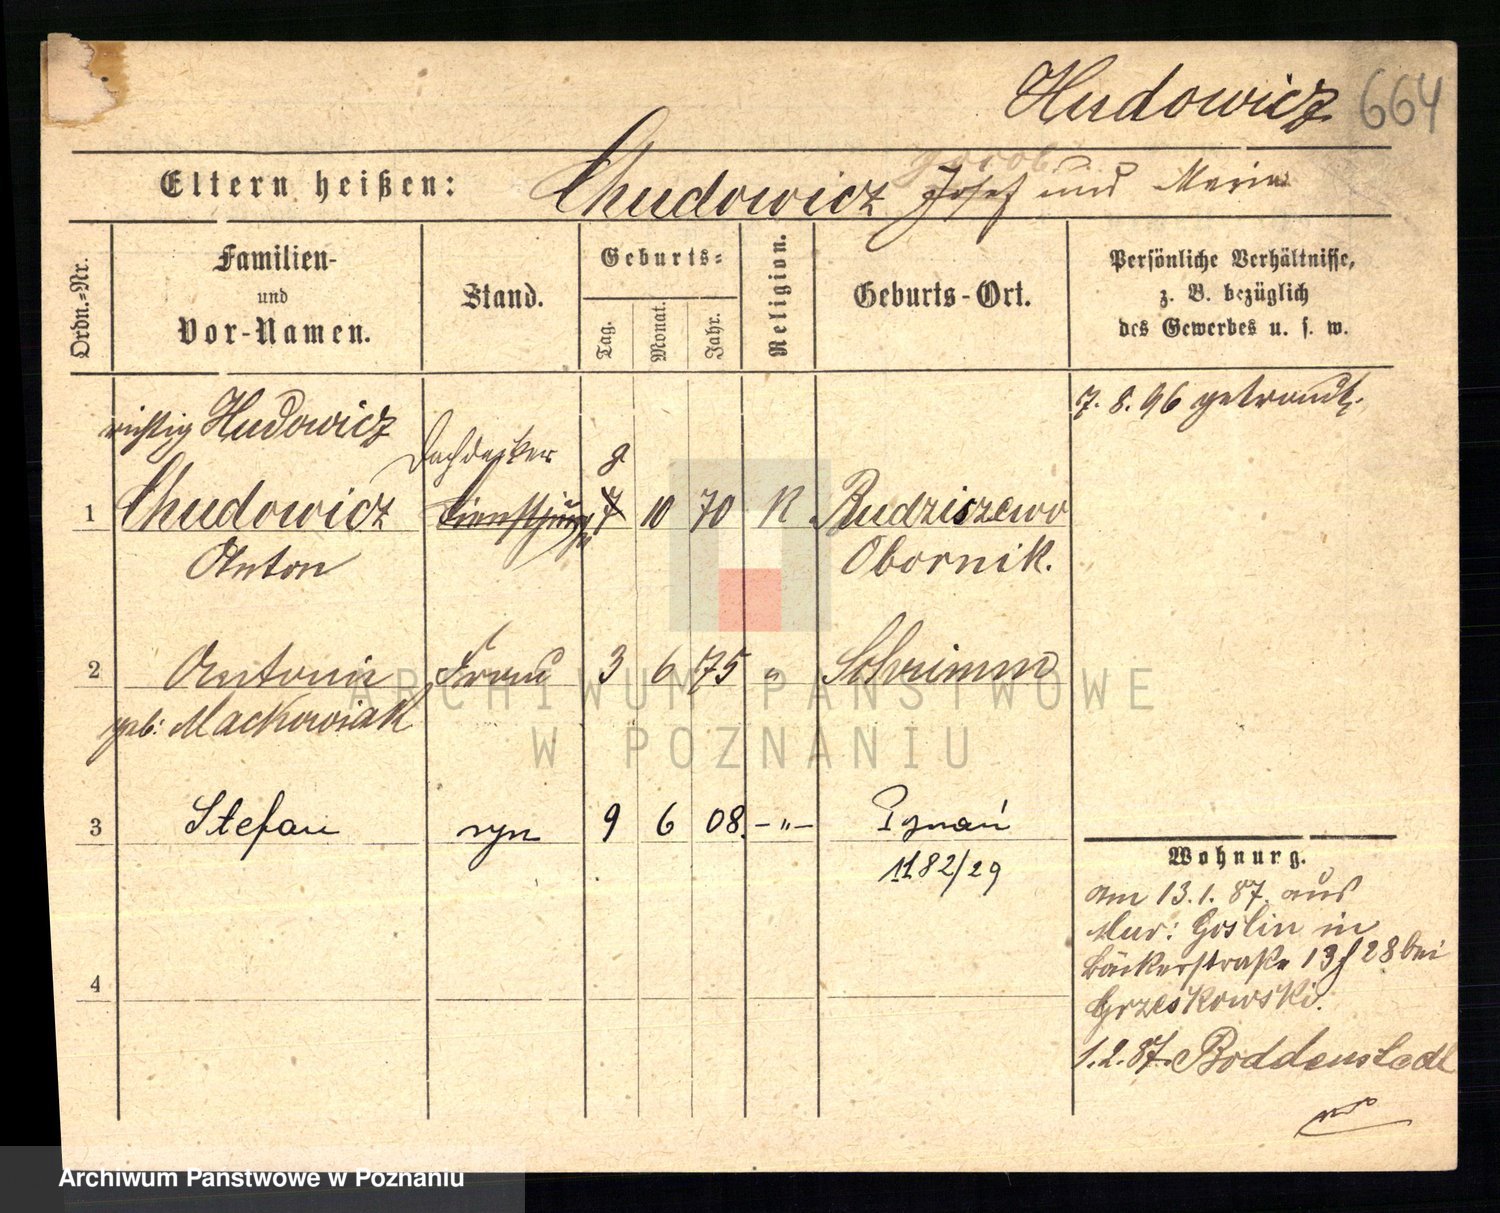 Hudowicz 664
Jacob
Eltern heißen: Chudowicz Josef und Maria
Ordn.=Nr.
Familien-
und
Vor-Namen.
Stand.
Geburts=
Tag.
Monat.
Jahr.
Religion.
Geburts-Ort.
Persönliche Verhältnisse,
z. B. bezüglich
des Gewerbes u. s. w.
7. 8. 96 getraut.
richtig Hudowicz
Dachdecker 9
1 Chudowicz Dienstjunge 7 10 70 K. Rudziszewo
Anton Obornik.
2 Antonie Frau 3 6 75 " Schrimm
geb: Mackowiak
3 Stefan syn 9 6 08. -"- Poznań
1182/29
Wohnung.
am 13.1.87. aus
Mur: Goslin in
Bäckerstraße 13/28 bei
Grzeskowski.
4
1.2.87. Boddenstedt
ARCHIWUM PAŃSTWOWE
W POZNANIU
Archiwum Państwowe w Poznaniu